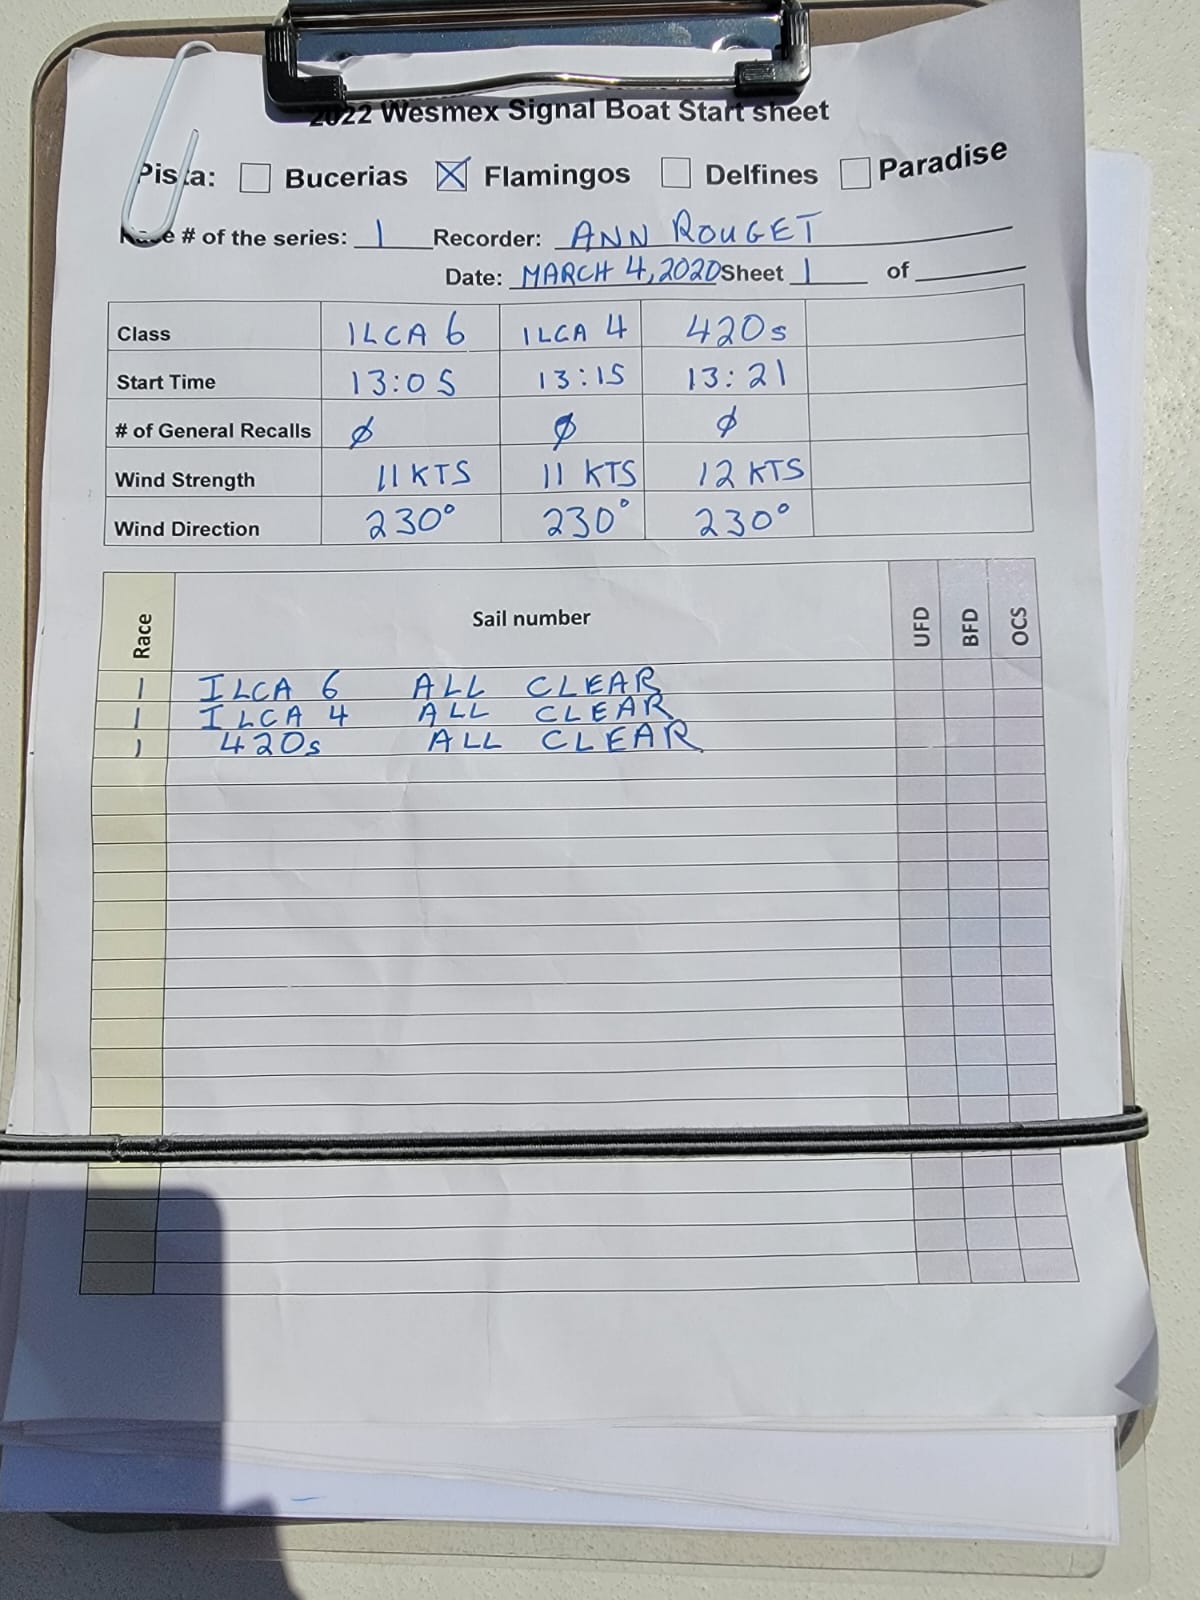 2022 Wesmex Signal Boat Start sheet
Pista: Bucerias Flamingos Delfines Paradise
Race # of the series: 1 Recorder: ANN ROUGET
Date: MARCH 4, 2020 Sheet 1 of
Class ILCA 6 ILCA 4 420s
Start Time 13:05 13:15 13:21
# of General Recalls ∅ ∅ ∅
Wind Strength 11 KTS 11 KTS 12 KTS
Wind Direction 230° 230° 230°
Race Sail number UFD BFD OCS
1 ILCA 6 ALL CLEAR
1 ILCA 4 ALL CLEAR
1 420s ALL CLEAR